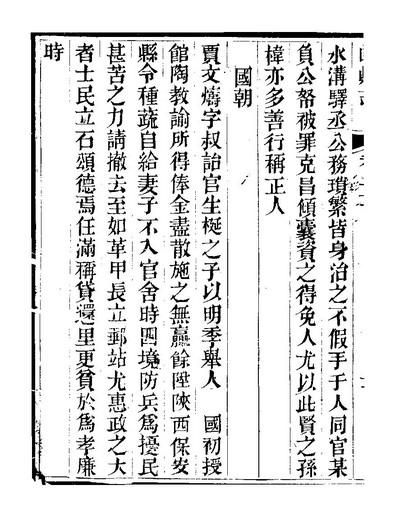 水溝驛丞公務瑣繁皆身治之不假手于人同官某
負公帑被罪克昌傾囊資之得免人尤以此賢之孫
椲亦多善行稱正人
國朝
賈文燽字叔詒官生梴之子以明季舉人 國初授
館陶教諭所得俸金盡散施之無贏餘陞陝西保安
縣令種蔬自給妻子不入官舍時四境防兵爲擾民
甚苦之力請撤去至如革甲長立郵站尤惠政之大
者士民立石頌德焉任滿稱貸還里更貧於爲孝廉
時